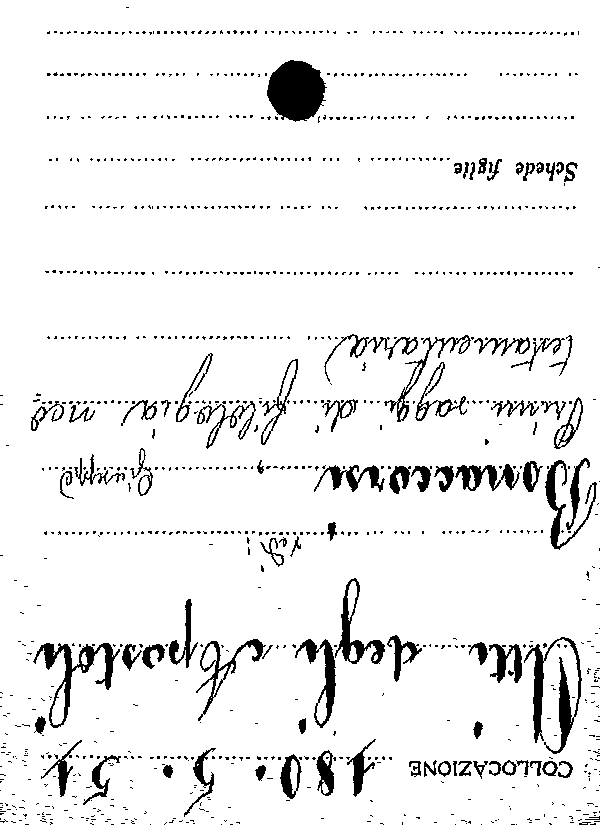 COLLOCAZIONE 180. 5. 51
Atti degli Apostoli
ved:
Bonaccorsi, Giuseppe
Primi saggi di filologia neo
testamentaria
Schede figlie